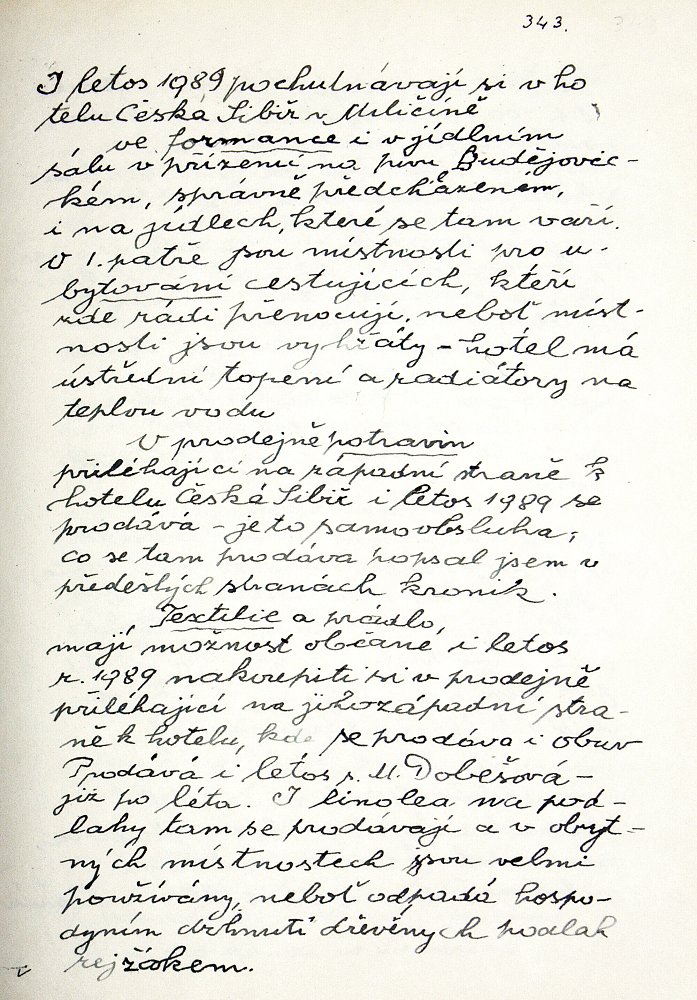 343.
I letos 1989 pochutnávají si v ho
telu Česká Sibiř v Miličíně
ve formance i v jídlním
sálu v přízemí na pivu Budějovic-
kém, správně předcházeném,
i na jídlech, které se tam vaří.
V 1. patře jsou místnosti pro u-
bytování cestujících, kteří
zde rádi přenocují, neboť míst-
nosti jsou vyhřáty - hotel má
ústřední topení a radiátory na
teplou vodu
V prodejně potravin
přiléhající na západní straně k
hotelu Česká Sibiř i letos 1989 se
prodává - je to samoobsluha;
co se tam prodáva popsal jsem v
předešlých stranách kronik.
Textilie a prádlo,
mají možnost občané i letos
r. 1989 nakoupiti si v prodejně
přiléhající na jihozápadní stra-
ně k hotelu, kde se prodáva i obuv
Prodává i letos s. M. Dobešová-
již po léta. I linolea na pod-
lahy tam se prodávají a v obyt-
ných místnostech jsou velmi
používány, neboť odpadá hospo-
dyním drhnutí dřevěných podlah
rejžákem.